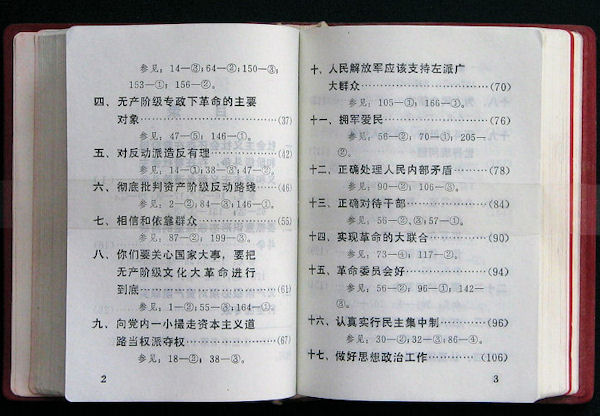 参见：14—③；64—②；150—③；
153—①；156—②。
四、无产阶级专政下革命的主要
对象……(37)
参见：47—⑤；146—①。
五、对反动派造反有理……(42)
参见：14—①；38—③；47—②。
六、彻底批判资产阶级反动路线……(46)
参见：2—②；84—③；146—①。
七、相信和依靠群众……(55)
参见：87—②；199—③。
八、你们要关心国家大事，要把
无产阶级文化大革命进行
到底……(61)
参见：1—②；55—③；164—①。
九、向党内一小撮走资本主义道
路当权派夺权……(67)
参见：18—②；38—③。
2
十、人民解放军应该支持左派广
大群众……(70)
参见：105—①；166—③。
十一、拥军爱民……(76)
参见：56—②；70—①；205—
②。
十二、正确处理人民内部矛盾……(78)
参见：90—②；106—③。
十三、正确对待干部……(84)
参见：56—②、③；57—①。
十四、实现革命的大联合……(90)
参见：73—④；117—②。
十五、革命委员会好……(94)
参见：56—②；96—①；142—
③。
十六、认真实行民主集中制……(96)
参见：30—②；32—③；86—④。
十七、做好思想政治工作……(106)
3